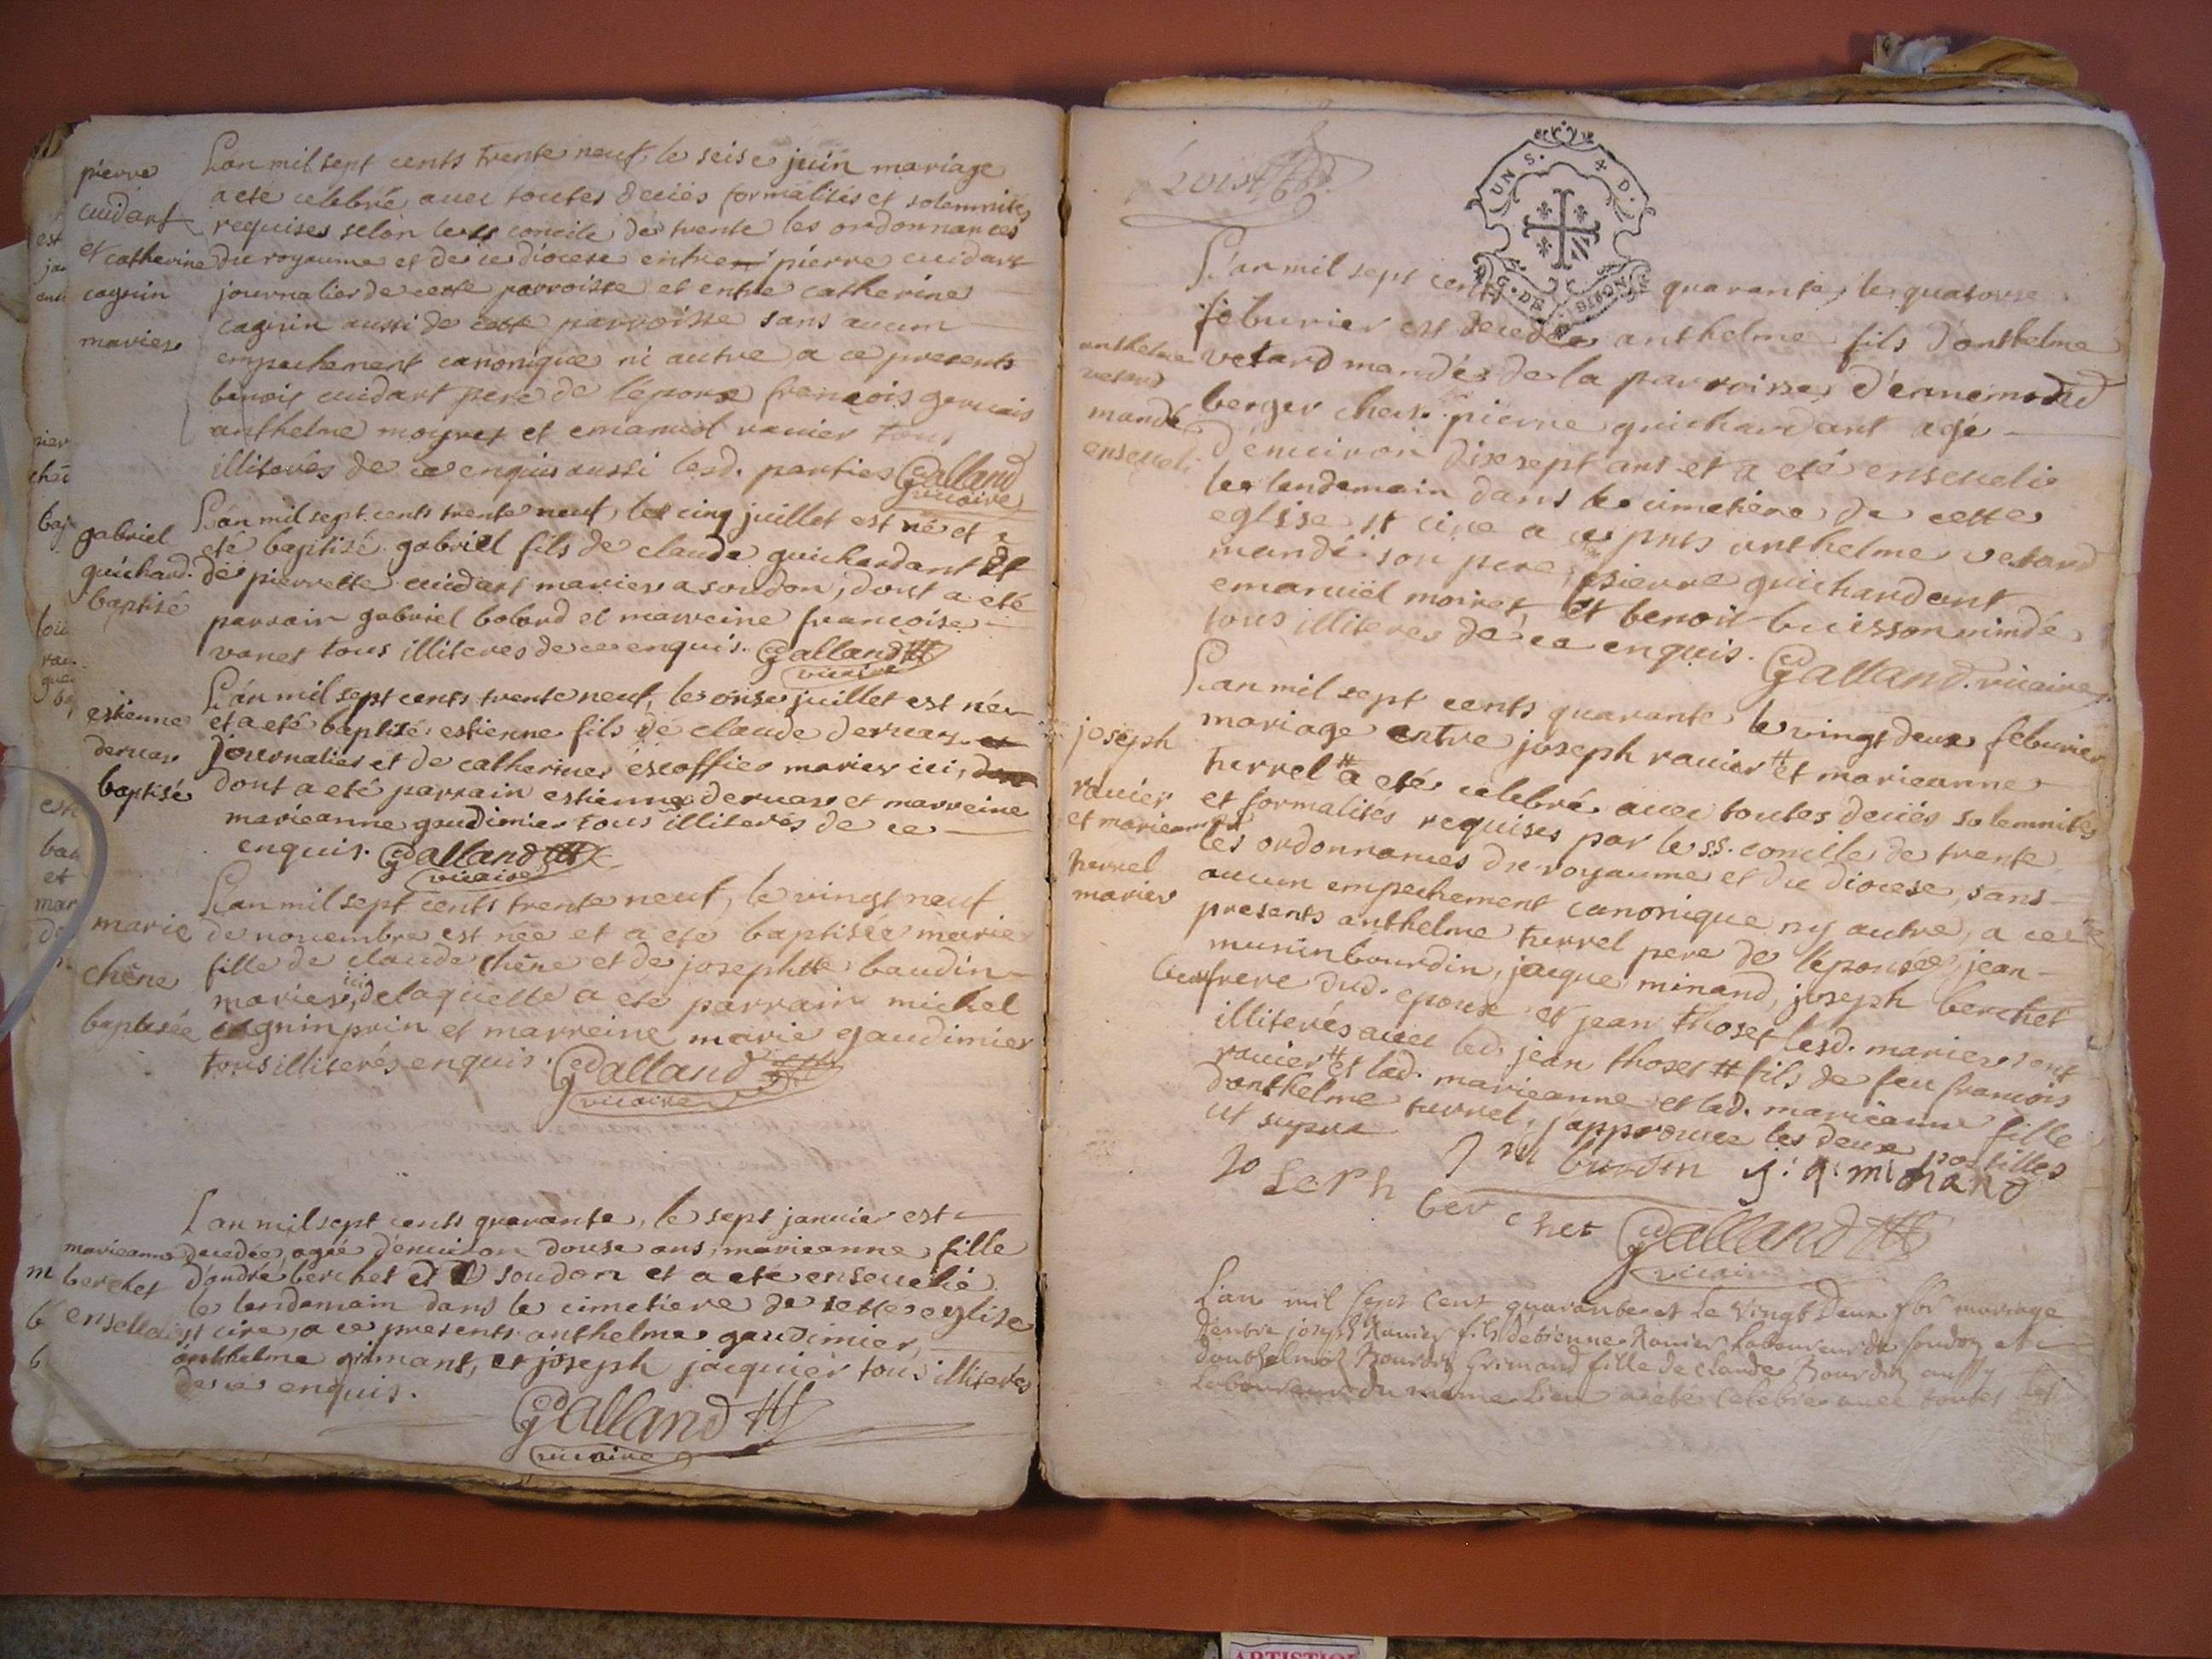 pierre
cuidart
et catherine
cagnin
mariez
L'an mil sept cents trente neuf, le seise juin mariage
a eté célébré avec toutes deües formalités et solemnités
requises selon le ss concile de trente les ordonnances
du royaume et de ce diocese entre pierre cuidart
journalier de cette parroisse et entre catherine
cagnin aussi de cette parroisse sans aucun
empechement canonique ni autre, a ce presents
benoit cuidart pere de l'epoux françois gervais
anthelme moyret et emanuel ravier tous
illiterés de ce enquis aussi lesd. parties Galland
vicaire
gabriel
guichard.
baptisé
L'an mil sept cents trente neuf, le cinq juillet est né et a
eté baptisé gabriel fils de claude guichardant et
de pierrette cuidart mariez a soudon, dont a eté
parrain gabriel bobard et marreine françoise
vanet tous illiteres de ce enquis. Galland
vicaire
estienne
dervas
baptisé
L'an mil sept cents trente neuf, le onse juillet est né
et a eté baptisé estienne fils de claude dervas
journalier et de catherine escoffier mariez ici,
dont a eté parrain estienne dervas et marreine
marieanne gaudimier tous illiterés de ce
enquis. Galland
vicaire
marie
chêne
baptisée
L'an mil sept cents trente neuf, le vingt neuf
de novembre est née et a eté baptisée marie
fille de claude chêne et de josephte baudin
mariez ici, de laquelle a eté parrain michel
cagnin prin et marreine marie gaudimier
tous illiterés enquis. Galland
vicaire
marieanne
berchet
ensevelie
L'an mil sept cents quarante, le sept janvier est
decedée, agée d'environ douse ans, marieanne, fille
d'andré berchet de soudon et a eté ensevelie
le lendemain dans le cimetiere de cette eglise
st cire, a ce presents anthelme gaudimier,
anthelme grimant, et joseph jacquier tous illiterés
de ce enquis.
Galland
vicaire
UN S. D.
G. DE DIJON
anthelme
vetard
mandé
enseveli
L'an mil sept cents quarante, le quatorse
feburier est decedé anthelme fils d'anthelme
vetard mandé de la parroisse d'ennemond
berger chez pierre guichardant agé
d'environ dixsept ans et a eté enseveli
le lendemain dans le cimetiere de cette
eglise st cire a ce pnts anthelme vetard
mandé son pere, pierre guichardant
emanuël moiret et benoit buisson
tous illiteres de ce enquis. Galland. vicaire
joseph
ravier
et marieanne
turrel
mariez
L'an mil sept cents quarante le vingt deux feburier
mariage entre joseph ravier # et marieanne
turrel # a eté célebré avec toutes deües solemnités
et formalités requises par le s.s. concille de trente
les ordonnances du royaume et du diocese, sans
aucun empechement canonique ny autre, a ce
presents anthelme turrel pere de l'epousée, jean
munin bourdin, jacque minand, joseph berchet
beaufrere dud. epoux et jean thoset lesd. mariez sont
illiterés avec led. jean thoset # fils de feu françois
ravier # et lad. marieanne et lad. marieanne fille
d'anthelme turrel, j'approuve les deux postilles
ut supra
burdin j: q: minand
joseph berchet Galland
vicaire
L'an mil sept cent quarante et le vingt deux fbr mariage
d'entre joseph Ravier fils d'etienne Ravier laboureur de soudon et
d'anthelmette Bourdin Grimand fille de claude Bourdin aussy
laboureur du meme lieu a eté celebré avec toutes les